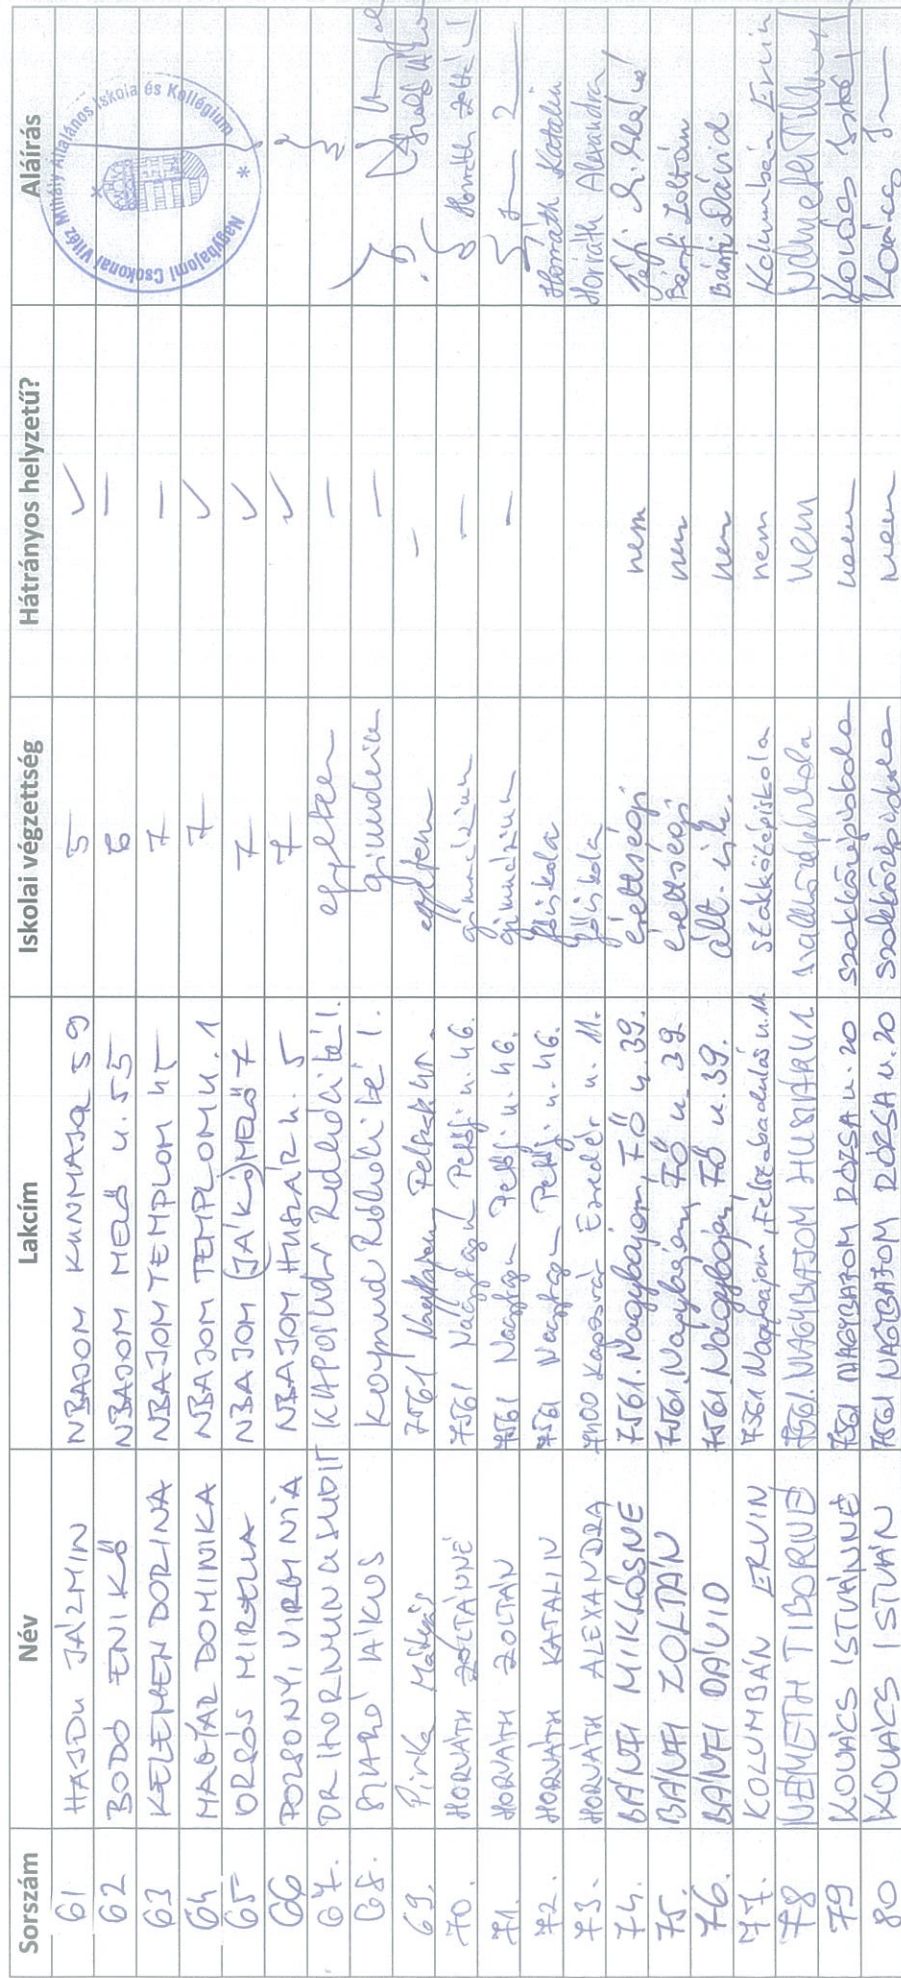 Sorszám Név Lakcím Iskolai végzettség Hátrányos helyzetű? Aláírás
61 HAJDU JÁZMIN NBAJOM KUNMAJOR 59 5 ✓
62 BODÓ ENIKŐ NBAJOM MEZŐ u. 55 6 –
63 KELEMEN DORINA NBAJOM TEMPLOM 45 7 –
64 MAGYAR DOMINIKA NBAJOM TEMPLOM u. 1 7 ✓
65 ORSÓS MIRELLA NBAJOM (JÁKÓ) MEZŐ 7 7 ✓
66 POZSONYI VIRGINIA NBAJOM HUSZÁR u. 5 7 ✓
67. DR HORNUNG JUDIT KAPOSVÁR 1. egyetem –
68. SZABÓ 1. gimnázium –
69. Pirka Mátyás 7561 Nagybajom egyetem –
70. HORVÁTH ZOLTÁNNÉ 7561 Nagybajom Petőfi u. 46. gimnázium – Horváth Zoltánné
71. HORVÁTH ZOLTÁN 7561 Nagybajom Petőfi u. 46. gimnázium –
72. HORVÁTH KATALIN 7561 Nagybajom Petőfi u. 46. főiskola Horváth Katalin
73. HORVÁTH ALEXANDRA 7400 Kaposvár Ezredév u. 11. főiskola Horváth Alexandra
74. BÁNFI MIKLÓSNÉ 7561. Nagybajom, FŐ u. 39. érettségi nem
75. BÁNFI ZOLTÁN 7561 Nagybajom, FŐ u. 39 érettségi nem Bánfi Zoltán
76. BÁNFI DÁVID 7561 Nagybajom, FŐ u. 39. ált. isk. nem Bánfi Dávid
77. KOLUMBÁN ERVIN 7561 Nagybajom, Felszabadulás u. 11. szakközépiskola nem Kolumbán Ervin
78 NÉMETH TIBORNÉ 7561. NAGYBAJOM HUSZÁR U 1. szakközépiskola nem
79 KOVÁCS ISTVÁNNÉ 7561 NAGYBAJOM RÓZSA u. 20 szakközépiskola nem
80 KOVÁCS ISTVÁN 7561 NAGYBAJOM RÓZSA u. 20 szakközépiskola nem
Nagybajomi Csokonai Vitéz Mihály Általános Iskola és Kollégium